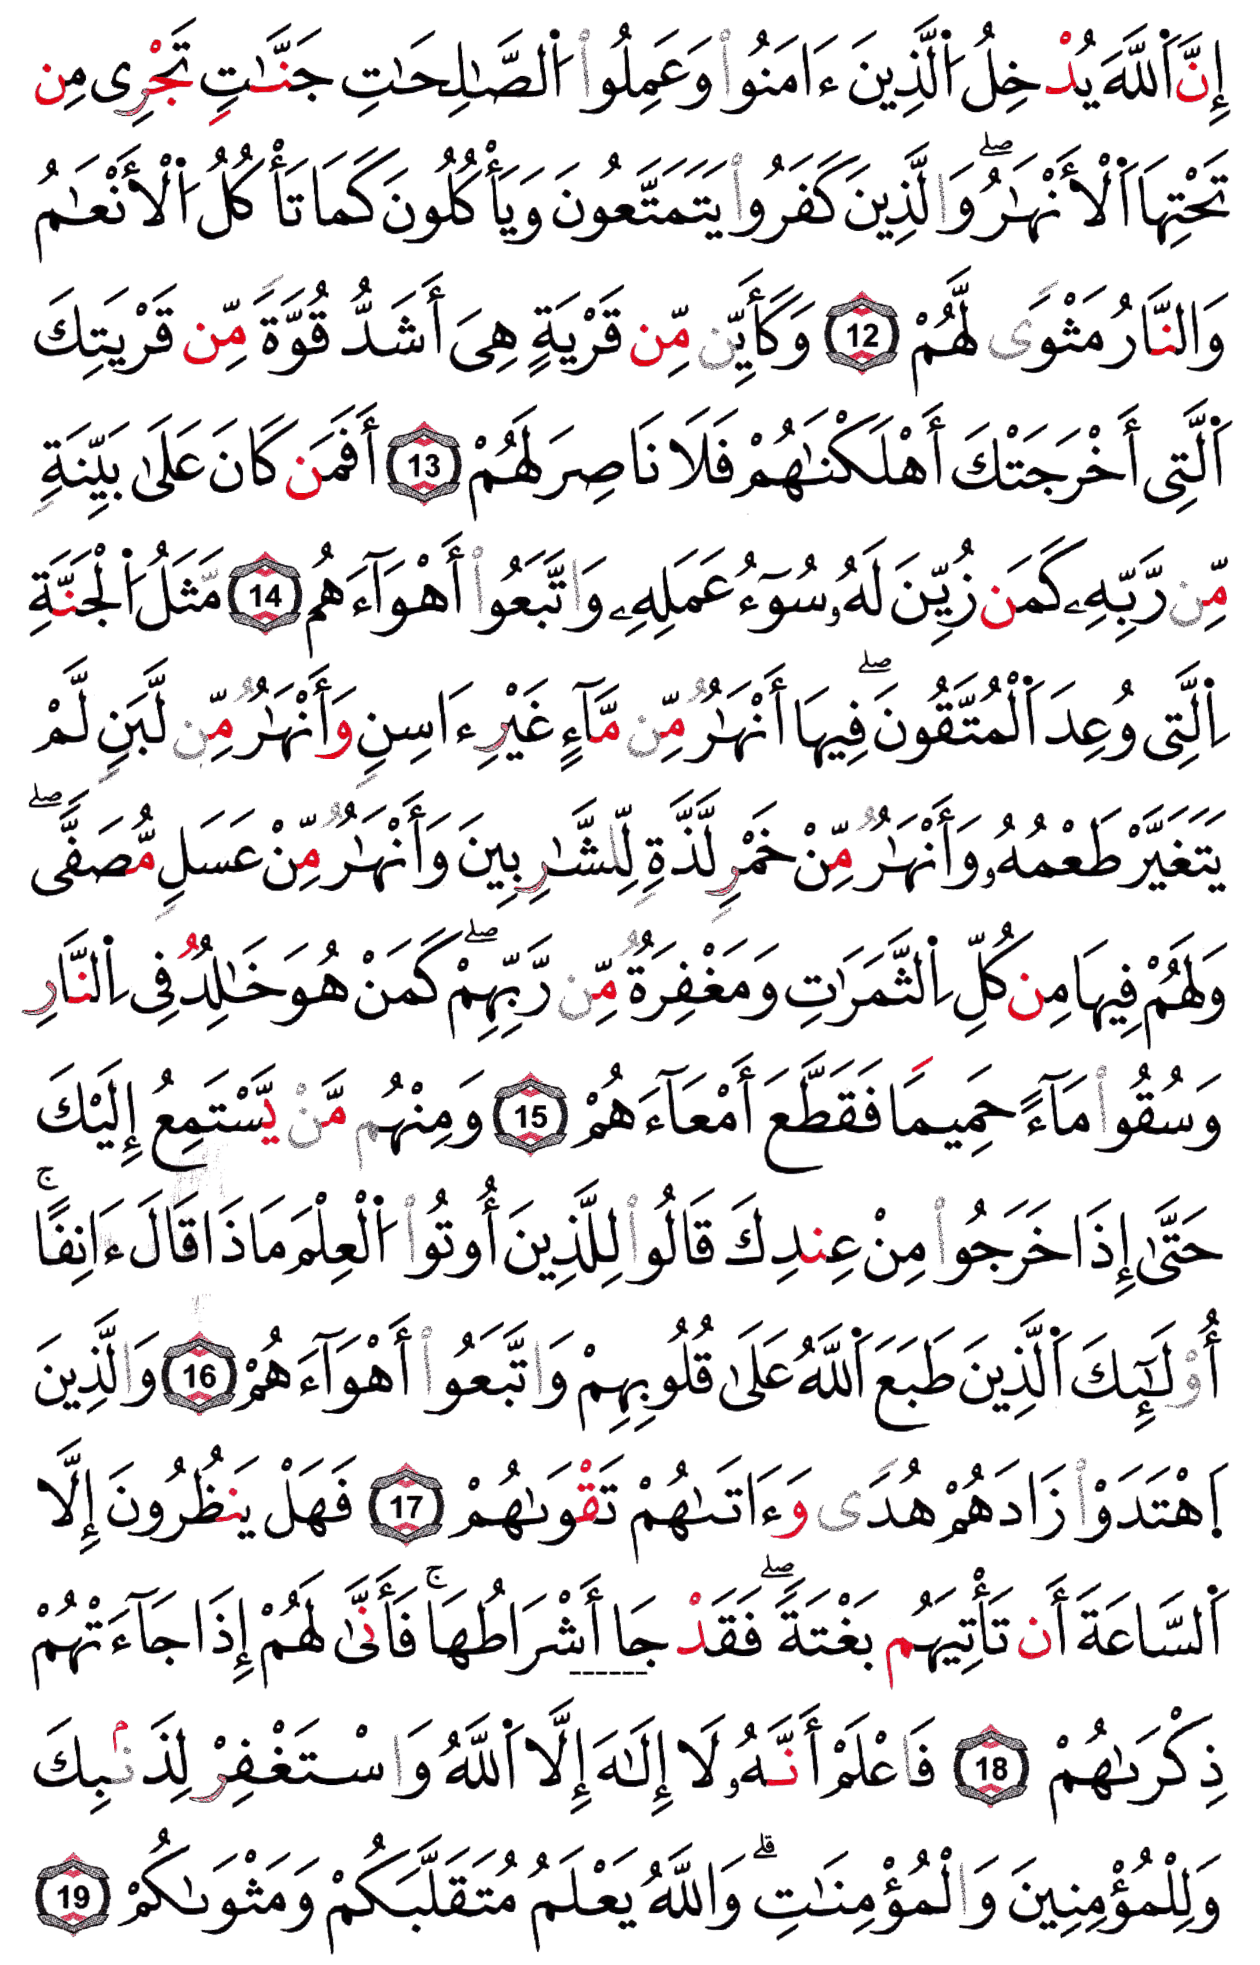 إِنَّ اَ۬للَّهَ يُدْخِلُ اُ۬لَّذِينَ ءَامَنُواْ وَعَمِلُواْ اُ۬لصَّٰلِحَٰتِ جَنَّٰتٖ تَجْرِى مِن
تَحْتِهَا اَ۬لْأَنْهَٰرُۖ وَالَّذِينَ كَفَرُواْ يَتَمَتَّعُونَ وَيَأْكُلُونَ كَمَا تَأْكُلُ اُ۬لْأَنْعَٰمُ
وَالنَّارُ مَثْوٗى لَّهُمْ 12 وَكَأَيِّن مِّن قَرْيَةٍ هِىَ أَشَدُّ قُوَّةٗ مِّن قَرْيَتِكَ
اَ۬لَّتِى أَخْرَجَتْكَ أَهْلَكْنَٰهُمْ فَلَا نَاصِرَ لَهُمْ 13 أَفَمَن كَانَ عَلَىٰ بَيِّنَةٖ
مِّن رَّبِّهِۦ كَمَن زُيِّنَ لَهُۥ سُوٓءُ عَمَلِهِۦ وَاتَّبَعُواْ أَهْوَآءَهُم 14 مَّثَلُ اُ۬لْجَنَّةِ
اِ۬لَّتِى وُعِدَ اَ۬لْمُتَّقُونَۖ فِيهَا أَنْهَٰرٞ مِّن مَّآءٍ غَيْرِ ءَاسِنٖ وَأَنْهَٰرٞ مِّن لَّبَنٖ لَّمْ
يَتَغَيَّرْ طَعْمُهُۥ وَأَنْهَٰرٞ مِّنْ خَمْرٖ لَّذَّةٖ لِّلشَّٰرِبِينَ وَأَنْهَٰرٞ مِّنْ عَسَلٖ مُّصَفّٗىۖ
وَلَهُمْ فِيهَا مِن كُلِّ اِ۬لثَّمَرَٰتِ وَمَغْفِرَةٞ مِّن رَّبِّهِمْۖ كَمَنْ هُوَ خَٰلِدٞ فِى اِ۬لنَّارِ
وَسُقُواْ مَآءً حَمِيمٗا فَقَطَّعَ أَمْعَآءَهُمْ 15 وَمِنْهُم مَّنْ يَّسْتَمِعُ إِلَيْكَ
حَتَّىٰ إِذَا خَرَجُواْ مِنْ عِندِكَ قَالُواْ لِلَّذِينَ أُوتُواْ اُ۬لْعِلْمَ مَاذَا قَالَ ءَانِفًاۚ
أُوْلَٰٓئِكَ اَ۬لَّذِينَ طَبَعَ اَ۬للَّهُ عَلَىٰ قُلُوبِهِمْ وَاتَّبَعُواْ أَهْوَآءَهُمْ 16 وَالَّذِينَ
اَ۪هْتَدَوْاْ زَادَهُمْ هُدٗى وَءَاتَىٰهُمْ تَقْوَىٰهُمْ 17 فَهَلْ يَنظُرُونَ إِلَّا
اَ۬لسَّاعَةَ أَن تَأْتِيَهُم بَغْتَةٗۖ فَقَدْ جَا أَشْرَاطُهَاۚ فَأَنَّىٰ لَهُمْ إِذَا جَآءَتْهُمْ
ذِكْرَىٰهُمْ 18 فَاعْلَمْ أَنَّهُۥ لَا إِلَٰهَ إِلَّا اَ۬للَّهُ وَاسْتَغْفِرْ لِذَنۢبِكَ
وَلِلْمُؤْمِنِينَ وَالْمُؤْمِنَٰتِۗ وَاللَّهُ يَعْلَمُ مُتَقَلَّبَكُمْ وَمَثْوَىٰكُمْ 19